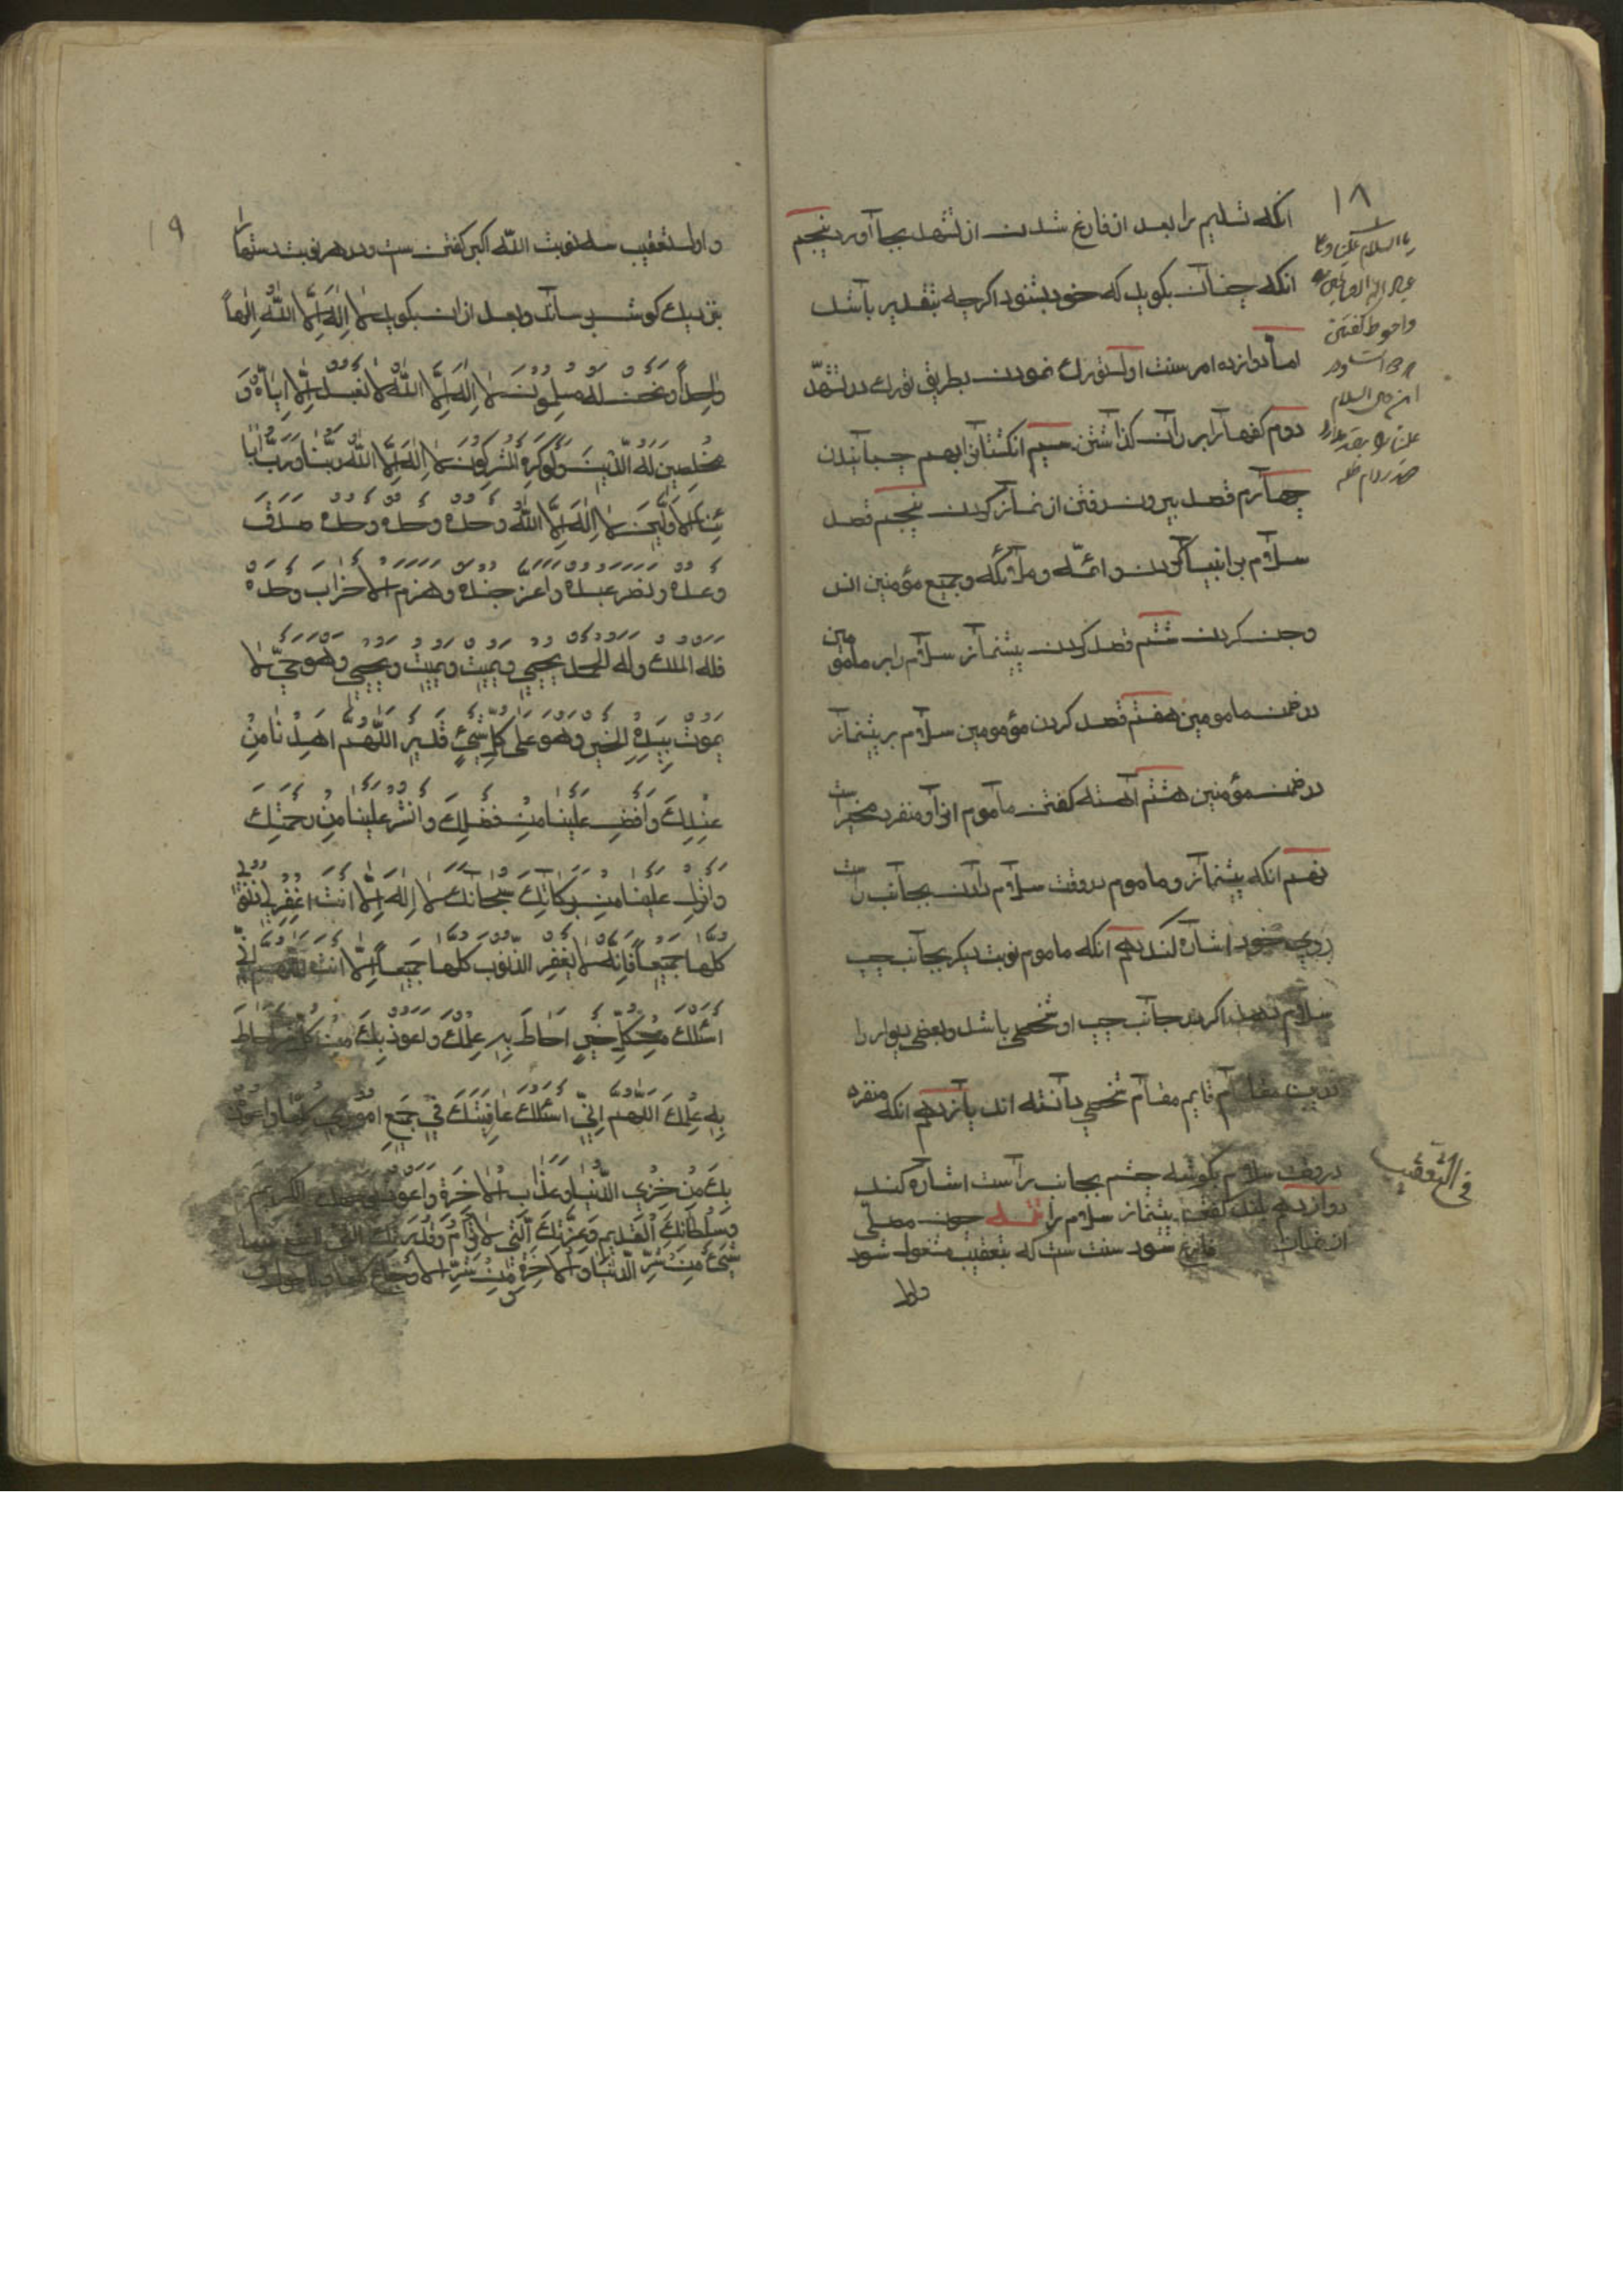 ۱۸
انکه تسلیم را بعد از فارغ شدن از تشهد بجا آورد پنجم
انکه چنان بکوید که خود بشنود اکرچه بتقدیر باشد
اما دوازده امر سنت اول تورك نمودن بطریق تورك در تشهّد
دوم کفها را بر ران کذاشتن سیم انکشتان را بهم چسبانیدن
چهارم قصد بیرون رفتن از نماز کردن پنجم قصد
سلام بر انبیا کردن و ائمّه و ملائکه و جمیع مؤمنین انس
و جن کردن ششم قصد کردن پیشنماز سلام را بر مامومین
در ضمن مامومین هفتم قصد کردن مؤمومین سلام بر پیشنماز
در ضمن مؤمنین هشتم آهسته کفتن ماموم انرا و منفرد مخیر است
نهم انکه پیشنماز و ماموم در وقت سلام دادن بجانب راست
روی خود اشاره کند دهم انکه ماموم نوبت دیکر بجانب چپ
سلام دهد اکر در جانب چپ او شخصی باشد و بعضی دیوار را
درین مقام قایم مقام شخصی دانسته اند یازدهم انکه منفرد
در وقت سلام بکوشه چشم بجانب راست اشاره کند
دوازدهم بلند کفتن پیشنماز سلام را تتمه چون مصلّی
از نماز فارغ شود سنت ست که بتعقیب مشغول شود
واول
یا السلام علینا و علی
عباد الله الصالحین
واحوط کفتن
السلام
فی التّعقیب
۱۹
و اول تعقیب سه نوبت اللّه اکبر کفتن ست و در هر نوبت دستها را
نزدیك کوش رساند و بعد از ان بکوید لا اِلٰهَ اِلَّا اللّٰهُ اِلٰهاً
واحِداً ونحن له مسلمونَ لا اِلٰهَ اِلَّا اللّٰهُ لا نعبد اِلّا اِیّاهُ وَ
مخلصین لَهُ الدّینَ ولَو کَرِهَ المُشرِکُونَ لا اِلٰهَ اِلَّا اللّٰهُ ربُّنا وَرَبُّ اٰبا
ئِنا الاَوَّلینَ لا اِلٰهَ اِلَّا اللّٰهُ وَحدَهُ وَحدَهُ وَحدَهُ صدق
وعده ونصر عبده واعز جنده وهزم الاحزاب وحده
فله الملك وله الحمد یحیی ویمیت ویمیت ویحیی وهو حیّ لا
یموت بِیَدِهِ الخیر وهو علی کلّ شیءٍ قدیر اللّٰهم اهدِنا مِن
عِندِكَ وافض علینا من فضلِكَ وانشر علینا من رحمتِكَ
وانزل علینا من برکاتِكَ سبحانك لا اِلٰهَ اِلّا انت اغفر لی ذنوبی
کلها جمیعاً فَاِنَّهُ لا یغفر الذّنوب کلها جمیعاً اِلّا انت اللهم اِنّی
اسئلك من کلّ خیرٍ احاط بِهِ عِلمُك واعوذ بِكَ من کلّ شر احاط
بِهِ عِلمُكَ اللّٰهم اِنّی اسئلك عافیتك فی جمیع اموری کلها واعوذ
بِكَ من خزی الدّنیا وعذاب الاخرة واعوذ بوجهك الکریم
وسلطانك القدیم وعزّتك الّتی لا ترام وقدرتك الّتی لا یمتنع منها
شیء من شرّ الدّنیا والاخرة ومن شرّ الاوجاع کلها